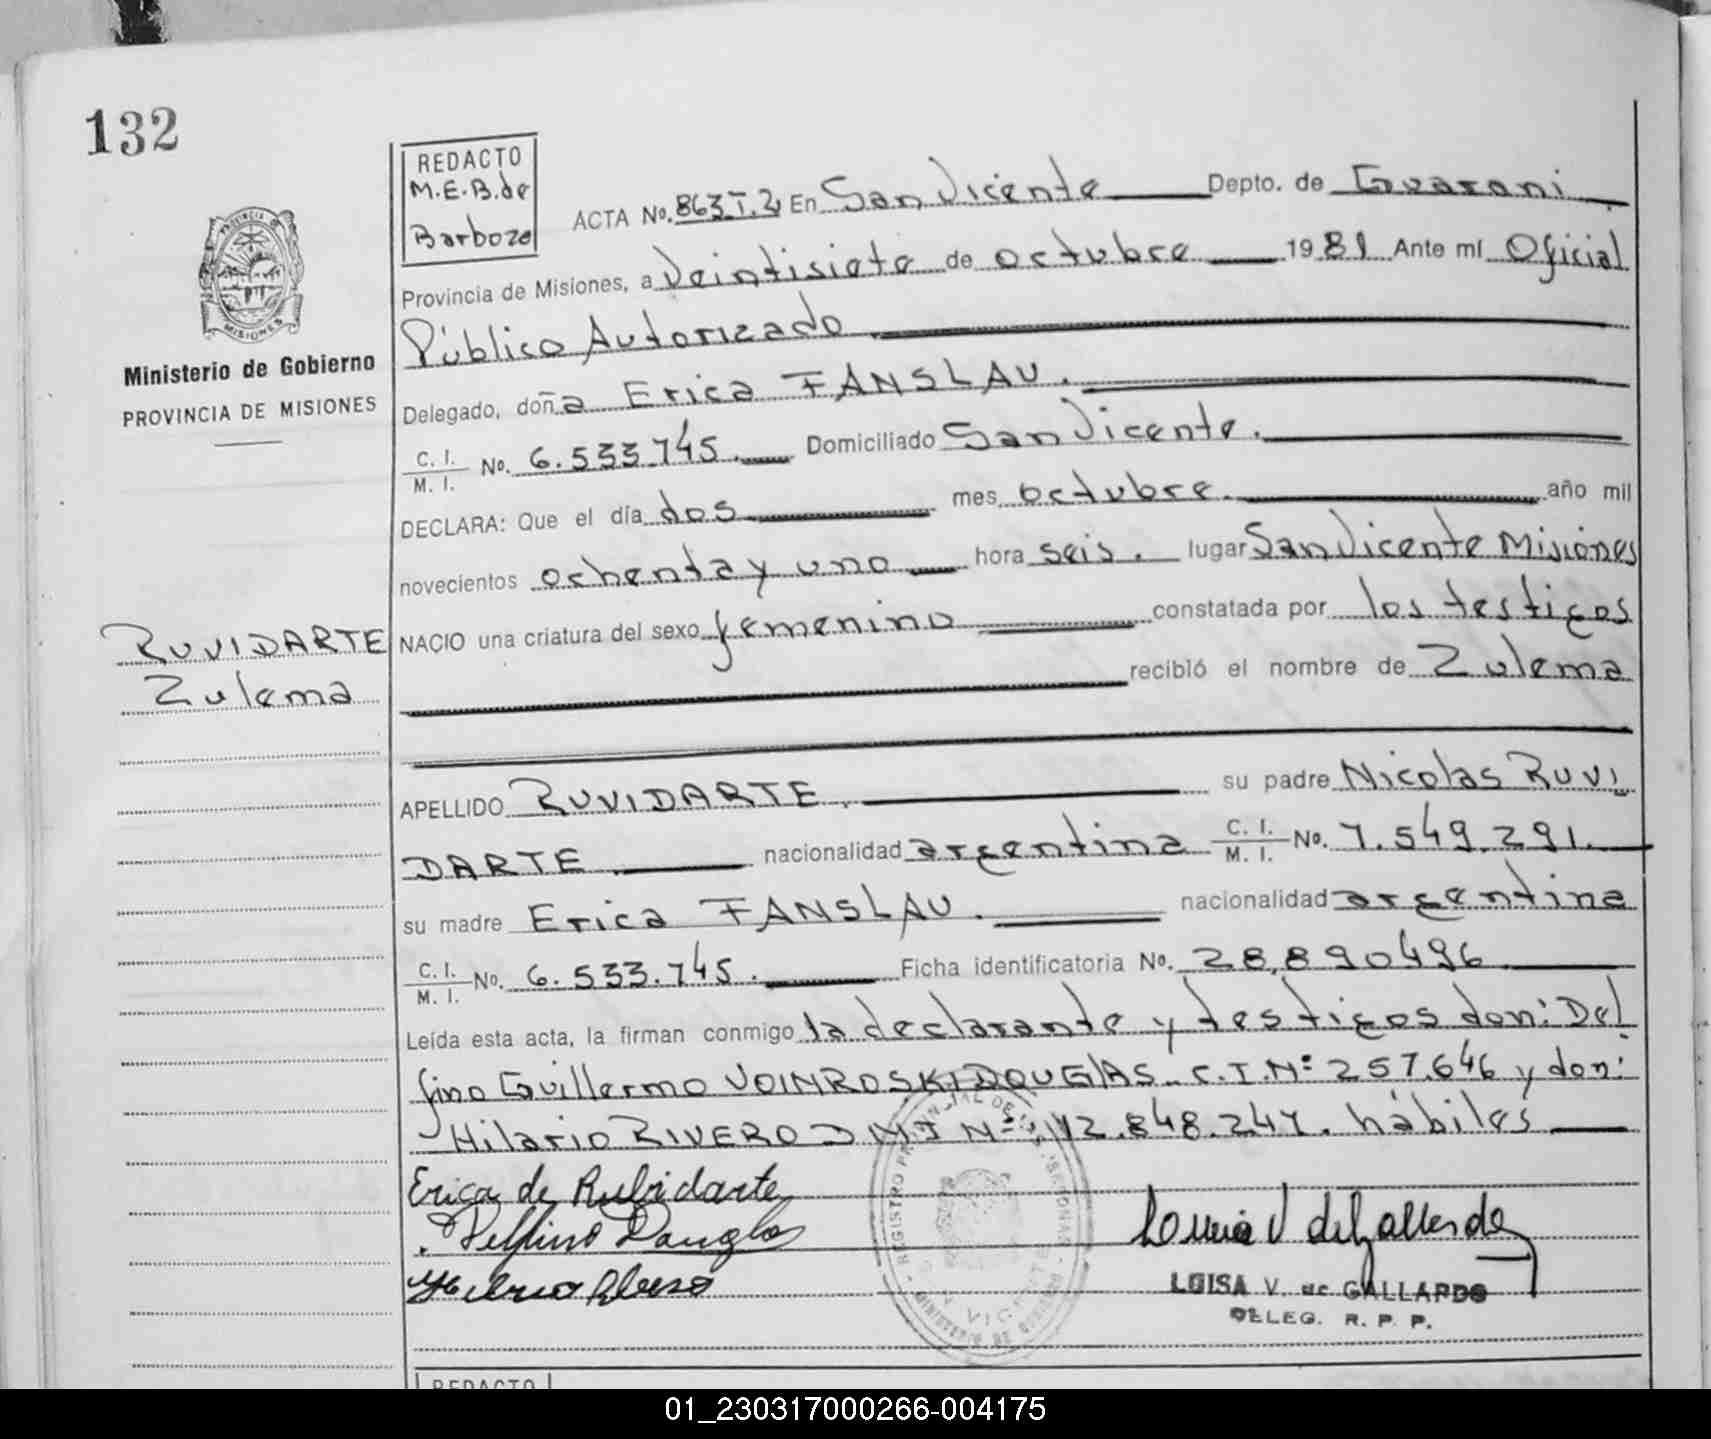 132
REDACTO
M.E.B. de
Barboza
ACTA No. 863 T. 2 En San Vicente Depto. de Guarani
Provincia de Misiones, a veintisiete de octubre 1981 Ante mí Oficial
Público Autorizado
Ministerio de Gobierno
PROVINCIA DE MISIONES
Delegado, doña Erica FANSLAU.
C. I. / M. I. No. 6.533.745. Domiciliado San Vicente.
DECLARA: Que el día dos mes octubre. año mil
novecientos ochenta y uno hora seis. lugar San Vicente Misiones
RUVIDARTE
Zulema
NACIO una criatura del sexo femenino constatada por los testigos
recibió el nombre de Zulema
APELLIDO RUVIDARTE. su padre Nicolas RUVI
DARTE nacionalidad argentina C. I. / M. I. No. 7.549.291.
su madre Erica FANSLAU. nacionalidad argentina
C. I. / M. I. No. 6.533.745. Ficha identificatoria No. 28.890496
Leída esta acta, la firman conmigo la declarante y testigos don: Del
fino Guillermo DOUGLAS. C.I.Nº 257.646 y don:
Hilario RIVERO MI Nº 12.848.247. hábiles
Erica de Rubidarte
Delfino Douglas
LUISA V. de GALLARDO
DELEG. R. P. P.
REDACTO
01_230317000266-004175